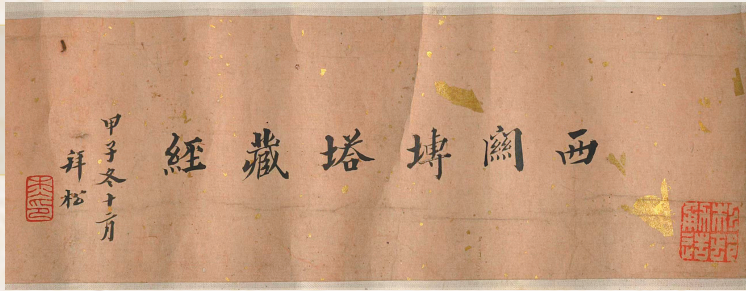 西關塼塔藏經
甲子冬十二月
拜松